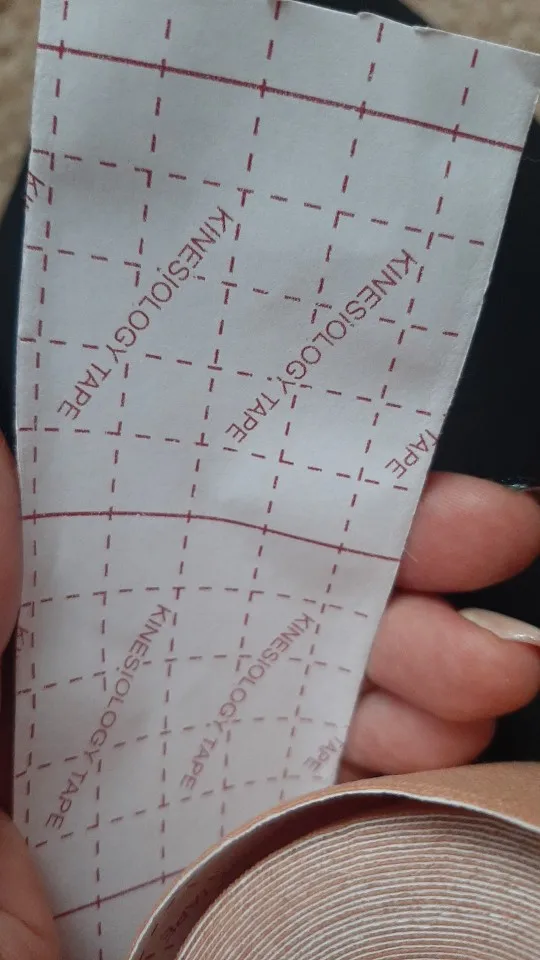 KINESIOLOGY TAPE
KINESIOLOGY TAPE
TAPE
KINESIOLOGY TAPE
KINESIOLOGY TAPE
TAPE
TAPE